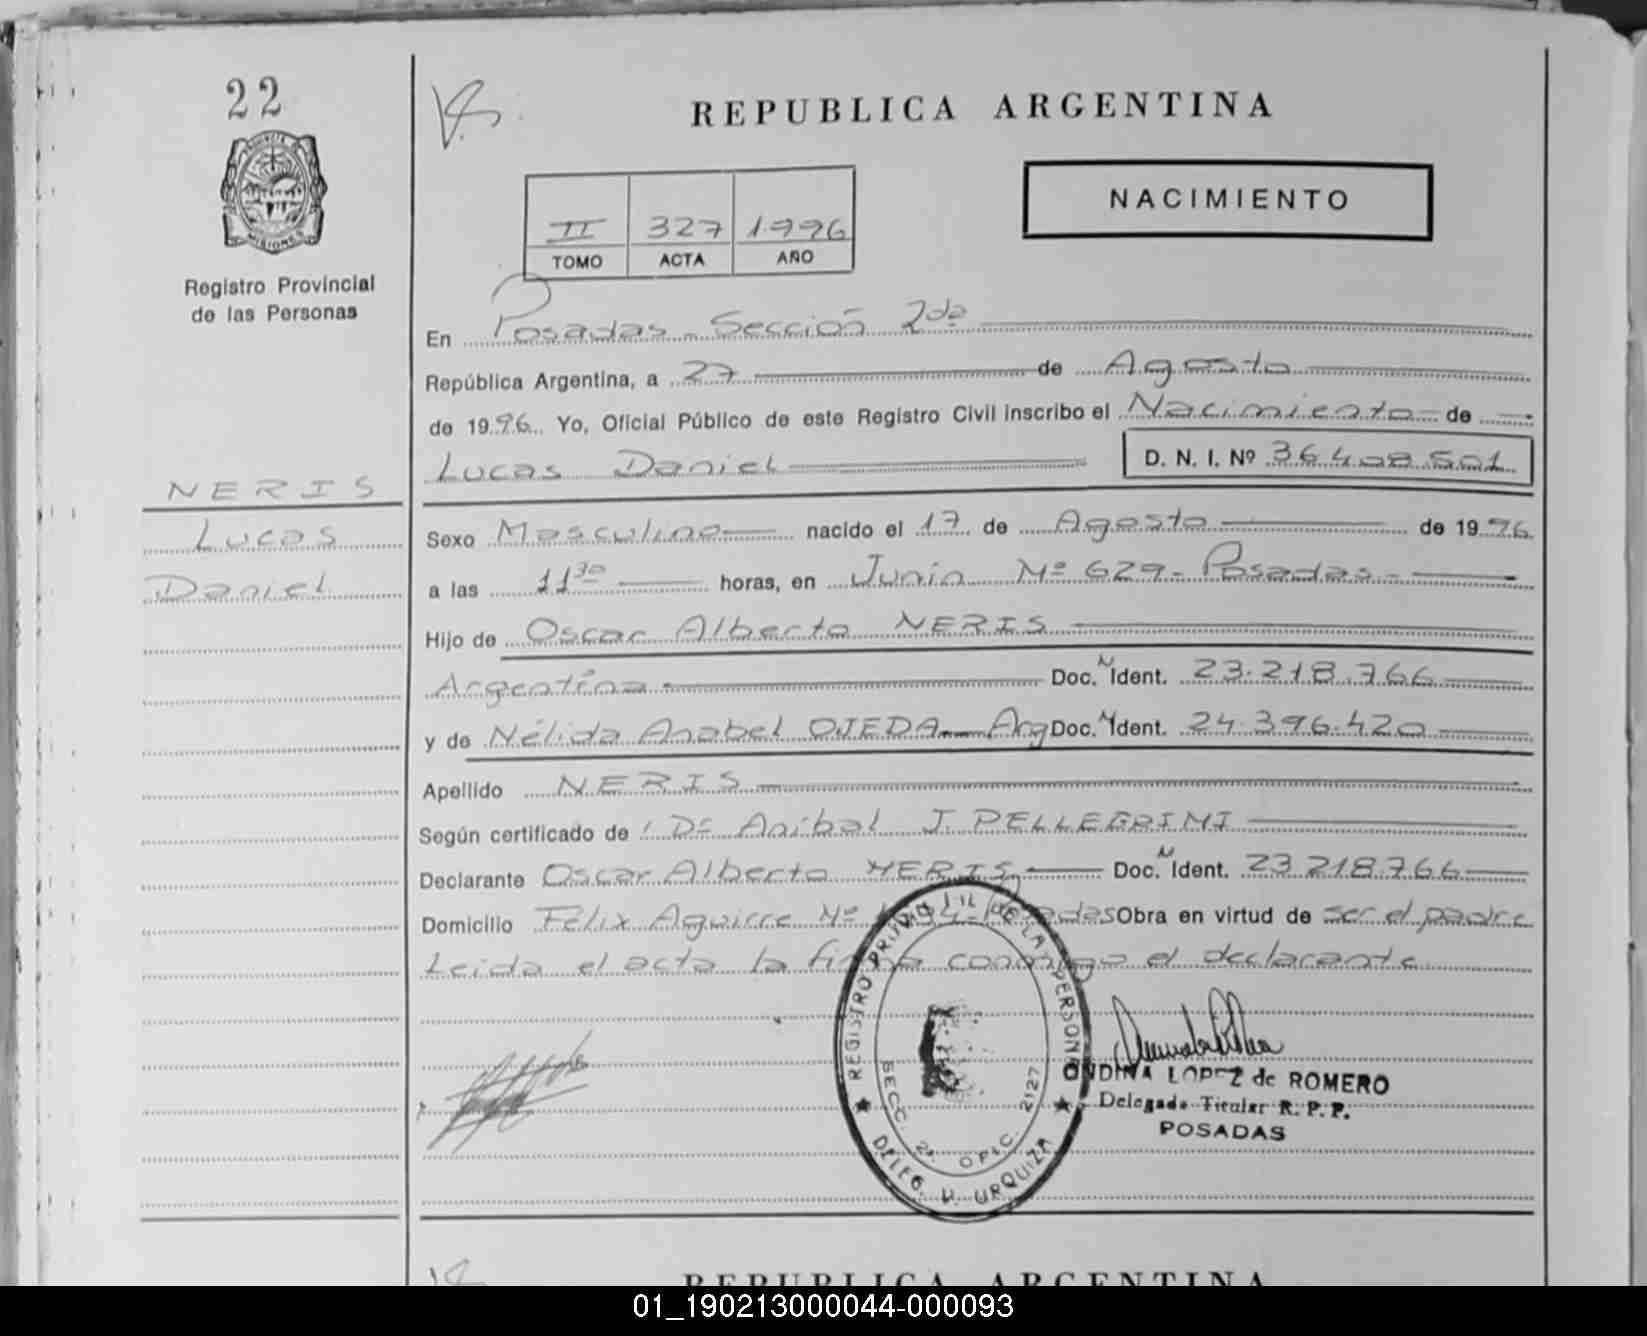 22
PROVINCIA DE
MISIONES
Registro Provincial
de las Personas
NERIS
Lucas
Daniel
REPUBLICA ARGENTINA
NACIMIENTO
II 327 1996
TOMO ACTA AÑO
En Posadas - Sección 2da
República Argentina, a 27 de Agosto
de 1996. Yo, Oficial Público de este Registro Civil inscribo el Nacimiento de
Lucas Daniel D. N. I. Nº 36.408.501
Sexo Masculino nacido el 17 de Agosto de 1996
a las 11 30 horas, en Junín Nº 629 - Posadas -
Hijo de Oscar Alberto NERIS
Argentina Doc. N Ident. 23.218.766
y de Nélida Anabel OJEDA - Arg Doc. N Ident. 24.396.420
Apellido NERIS
Según certificado de Dr Anibal J. PELLEGRINI
Declarante Oscar Alberto NERIS Doc. N Ident. 23.218.766
Domicilio Félix Aguirre Nº Posadas Obra en virtud de ser el padre
Leida el acta la firma conmigo el declarante
REGISTRO PROVINCIAL DE LAS PERSONAS
SECC. 2ª. OFIC. 2127
DELEG. U. URQUIZA
ONDINA LOPEZ de ROMERO
Delegado Titular R. P. P.
POSADAS
REPUBLICA ARGENTINA
01_190213000044-000093